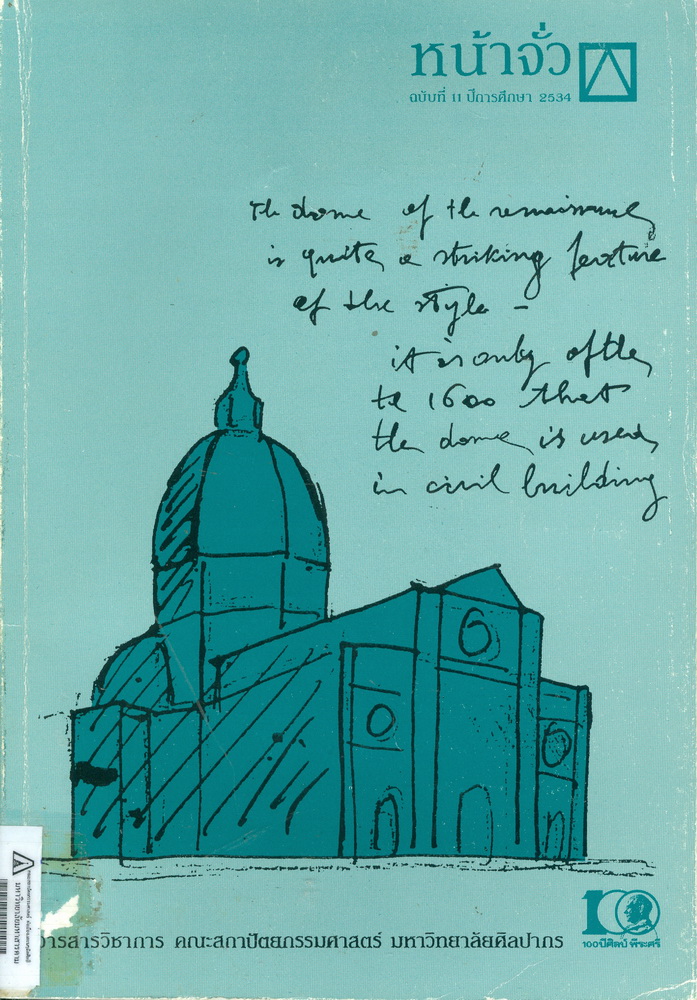 หน้าจั่ว
ฉบับที่ 11 ปีการศึกษา 2534
The dome of the renaissance
is quite a striking feature
of the style -
it is only after
te 1600 that
the dome is used
in civil building
100
100 ปี ศิลป์ พีระศรี
วารสารวิชาการ คณะสถาปัตยกรรมศาสตร์ มหาวิทยาลัยศิลปากร
มหาวิทยาลัยมหาสารคาม